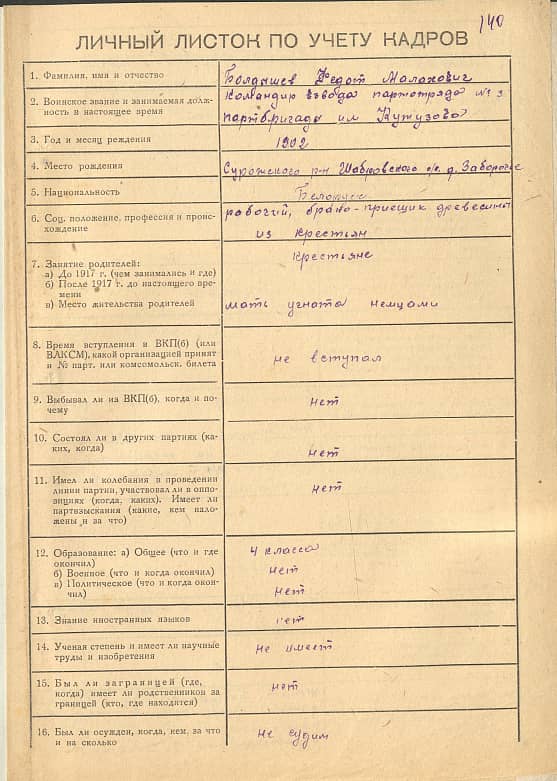 140
ЛИЧНЫЙ ЛИСТОК ПО УЧЕТУ КАДРОВ
1. Фамилия, имя и отчество
Болдышев Федот Малахович
2. Воинское звание и занимаемая долж-
ность в настоящее время
Командир взвода партотряда № 3
партбригады им Кутузова
3. Год и месяц рождения
1902
4. Место рождения
Суражского р-н Шабровского с/с. д. Заборье
5. Национальность
Белорус
6. Соц. положение, профессия и проис-
хождение
рабочий, брако-приещик древесины
из крестьян
7. Занятие родителей:
а) До 1917 г. (чем занимались и где)
б) После 1917 г. до настоящего вре-
мени
в) Место жительства родителей
крестьяне
мать угната немцами
8. Время вступления в ВКП(б) (или
ВЛКСМ), какой организацией принят
и № парт. или комсомольск. билета
не вступал
9. Выбывал ли из ВКП(б), когда и по-
чему
нет
10. Состоял ли в других партиях (ка-
ких, когда)
нет
11. Имел ли колебания в проведении
линии партии, участвовал ли в оппо-
зициях (когда, каких). Имеет ли
партвзыскания (какие, кем нало-
жены и за что)
нет
12. Образование: а) Общее (что и где
окончил)
б) Военное (что и когда окончил)
в) Политическое (что и когда окон-
чил)
4 класса
нет
нет
13. Знание иностранных языков
нет
14. Ученая степень и имеет ли научные
труды и изобретения
не имеет
15. Был ли заграницей (где,
когда) имеет ли родственников за
границей (кто, где находится)
нет
16. Был ли осужден, когда, кем, за что
и на сколько
не судим